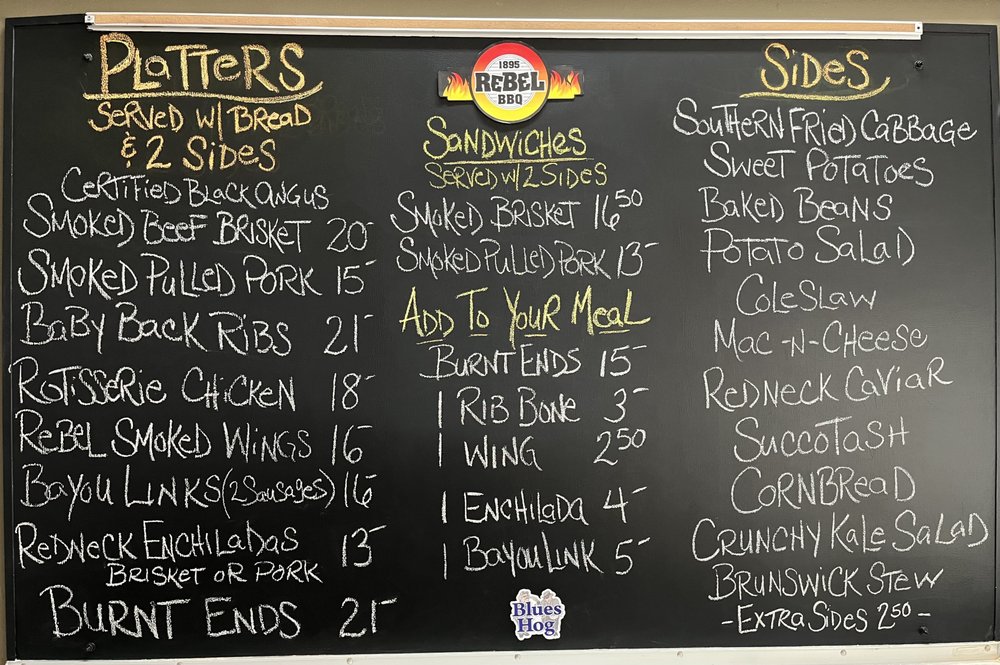 Platters
Served w/ Bread
& 2 Sides
Certified Black Angus
Smoked Beef Brisket 20-
Smoked Pulled Pork 15-
Baby Back Ribs 21-
Rotisserie Chicken 18-
Rebel Smoked Wings 16-
Bayou Links (2 Sausages) 16-
Redneck Enchiladas 13-
Brisket or Pork
Burnt Ends 21-
1895
REBEL
BBQ
Sandwiches
Served w/ 2 Sides
Smoked Brisket 16 50
Smoked Pulled Pork 13-
Add To Your Meal
Burnt Ends 15-
1 Rib Bone 3-
1 Wing 2 50
1 Enchilada 4-
1 Bayou Link 5-
Blues
Hog
Sides
Southern Fried Cabbage
Sweet Potatoes
Baked Beans
Potato Salad
Coleslaw
Mac-N-Cheese
Redneck Caviar
Succotash
Cornbread
Crunchy Kale Salad
Brunswick Stew
- Extra Sides 2 50 -